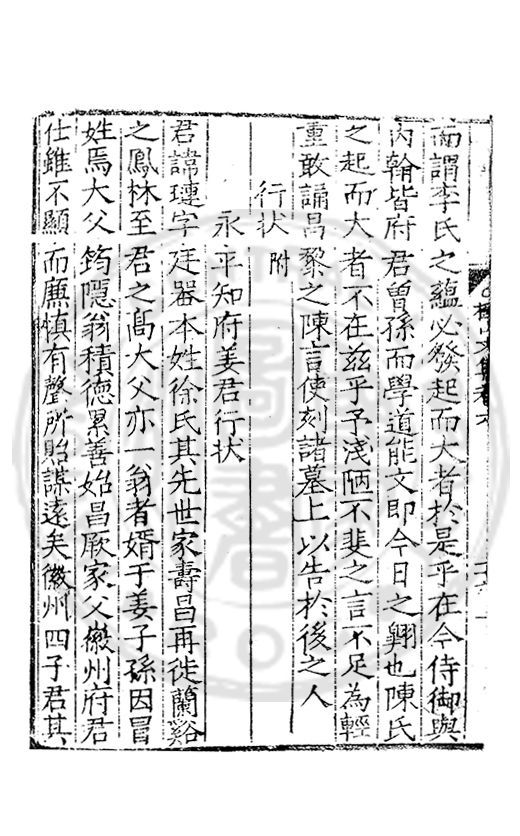 而謂李氏之蘊必發起而大者於是乎在今侍御與
内翰皆府君曾孫而學道能文即今日之翱也陳氏
之起而大者不在兹乎予淺陋不斐之言不足為輕
重敢誦昌黎之陳言使刻諸墓上以告於後之人
行状 附
永平知府姜君行状
君諱璉字廷器本姓徐氏其先世家壽昌再徙蘭谿
之鳳林至君之髙大父亦一翁者婿于姜子孫因冒
姓焉大父筠隱翁積德累善始昌厥家父徽州府君
仕雖不顯而亷慎有聲所貽謀逺矣徽州四子君其